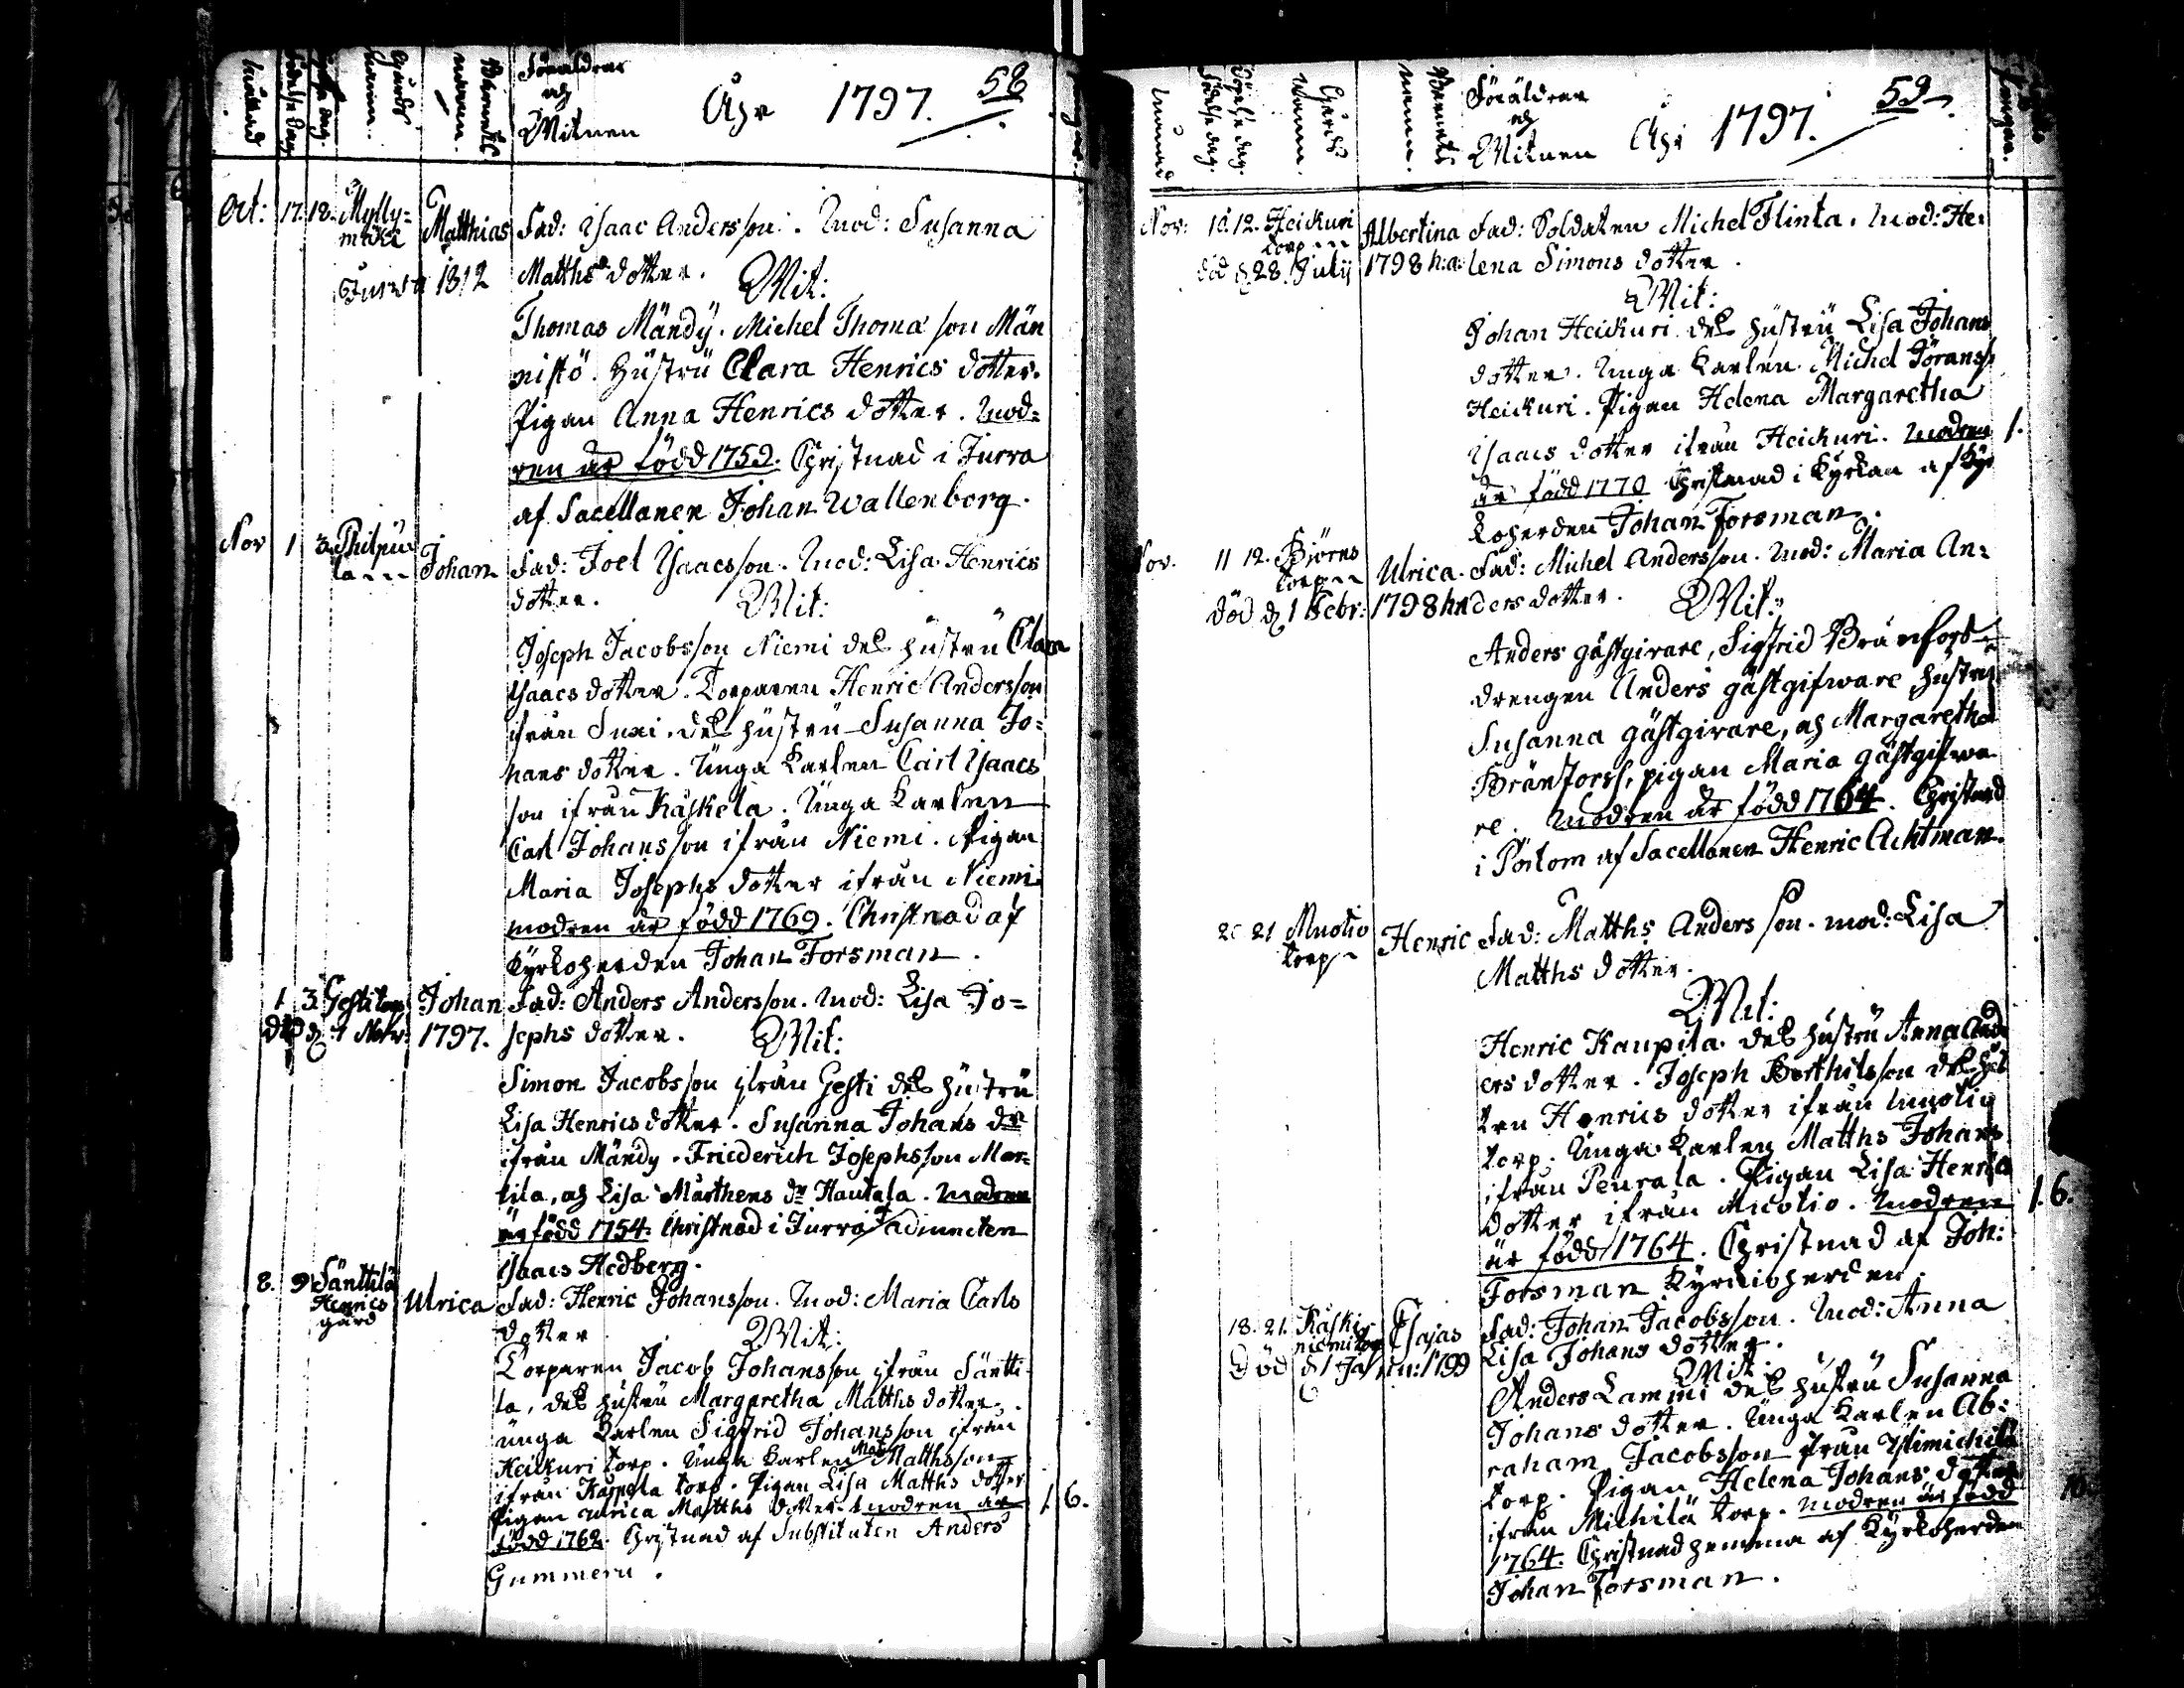 Månad Födelse dag Döpelse dag. Gårds Namn. Barnets namn. Föräldrar och Witnen Åhr 1797. 58
Oct: 17. 18. Mylly= Matthias Fad: Isaac Andersson. Mod: Susanna
mäki
1812 Matths dotter. Wit:
Thomas Mändÿ. Michel Thomasson Män
nistö. Hüstrü Clara Henrics dotter.
Pigan Anna Henrics dotter. Mod=
ren är född 1759. Christnad i Jurva
af Sacellanen Johan Wallenborg.
Nov 1 3. Philpu Johan Fad: Joel Isaacsson. Mod: Lisa Henrics
la
dotter. Wit:
Joseph Jacobsson Niemi dess hüstrü Clara
Isaacs dotter. Torparen Henric Andersson
ifrån Suxi, dess hüstrü Susanna Jo=
hans dotter. Ünga Karlen Carl Isaacs
son ifrån Käskelä. Ünga Karlen
Carl Johansson ifrån Niemi. Pigan
Maria Josephs dotter ifrån Niemi
modren är född 1769. Christnad af
Kyrkoherden Johan Forsman.
1 3. Gesti torp Johan Fad: Anders Andersson. Mod: Lisa Jo=
död d. 7 Nov: 1797. sephs dotter. Wit:
Simon Jacobsson ifrån Gesti dess hüstrü
Lisa Henrics dotter. Susanna Johans dr
ifrån Mändy. Friederich Josephsson Mar=
tila, och Lisa Mårthens dr Hautala. Modren
är född 1754. Christnad i Jurva af adjuncten
Isaac Hedberg.
8. 9 Sänttilä Ulrica Fad: Henric Johansson. Mod: Maria Carls
Henrics
gård
dotter Wit:
Torparen Jacob Johansson ifrån Säntti
lä, dess hüstrü Margaretha Matths dotter.
ünga Karlen Sigfrid Johansson ifrån
Heickuri torp. Ünga Karlen Mat Matthsson
ifrån Kaupila torp. Pigan Lisa Matths dotter
Pigan Ulrica Matths dotter. Modren är 1. 6.
född 1762. Christnad af Substituten Anders
Gummerü.
Månad Födelse dag. Döpelse dag. Gårds Namn. Barnets namn. Föräldrar och Witnen Åhr 1797. 59
Nov: 10. 12. Heickuri Albertina Fad: Soldaten Michel Flinta. Mod: He=
torp
död d. 28. Julii 1798 lena Simons dotter.
Wit:
Johan Heickuri dess hüstrü Lisa Johans
dotter. Unga Karlen Michel Jöranss
Heickuri. Pigan Helena Margaretha
Isaacs dotter ifrån Heickuri. Modren 1.
är född 1770 Christnad i Kyrkan af Kyr
koherden Johan Forsman.
Nov. 11 12. Björns Ulrica. Fad: Michel Andersson. Mod: Maria An=
torp
död d. 1 Febr: 1798 ders dotter. Wit:
Anders gästgivare, Sigfrid Bränfors
drengen Anders gästgifware, hüstru
Susanna gästgivare, och Margaretha
Bränforss, pigan Maria gästgifwa
re. Modren är född 1764. Christnad
i Pörtom af Sacellanen Henric Achtman.
20 21 Muotio Henric Fad: Matths Andersson. mod: Lisa
torp
Matths dotter.
Wit:
Henric Kaupila dess hüstrü Anna And
ers dotter. Joseph Berthilsson dess hüs
tru Henrics dotter ifrån Muotio
torp. Ünga Karlen Matths Johans
ifrån Peurala. Pigan Lisa Henrics
dotter ifrån Muotio. Modren 1. 6.
är född 1764. Christnad af Joh:
Forsman Kyrckioherden.
18. 21. Käski Esajas Fad: Johan Jacobsson. Mod: Anna
niemi torp
Död d. 1 Janu: 1799 Lisa Johans dotter.
Wit
Anders Lammi dess hüstrü Susanna
Johans dotter. Ünga Karlen Ab=
raham Jacobsson ifrån Ylimichilä
torp. Pigan Helena Johans dotter
ifrån Michilä torp. Modren är född
1764. Christnad hemma af Kyrkoherden
Johan Forsman.